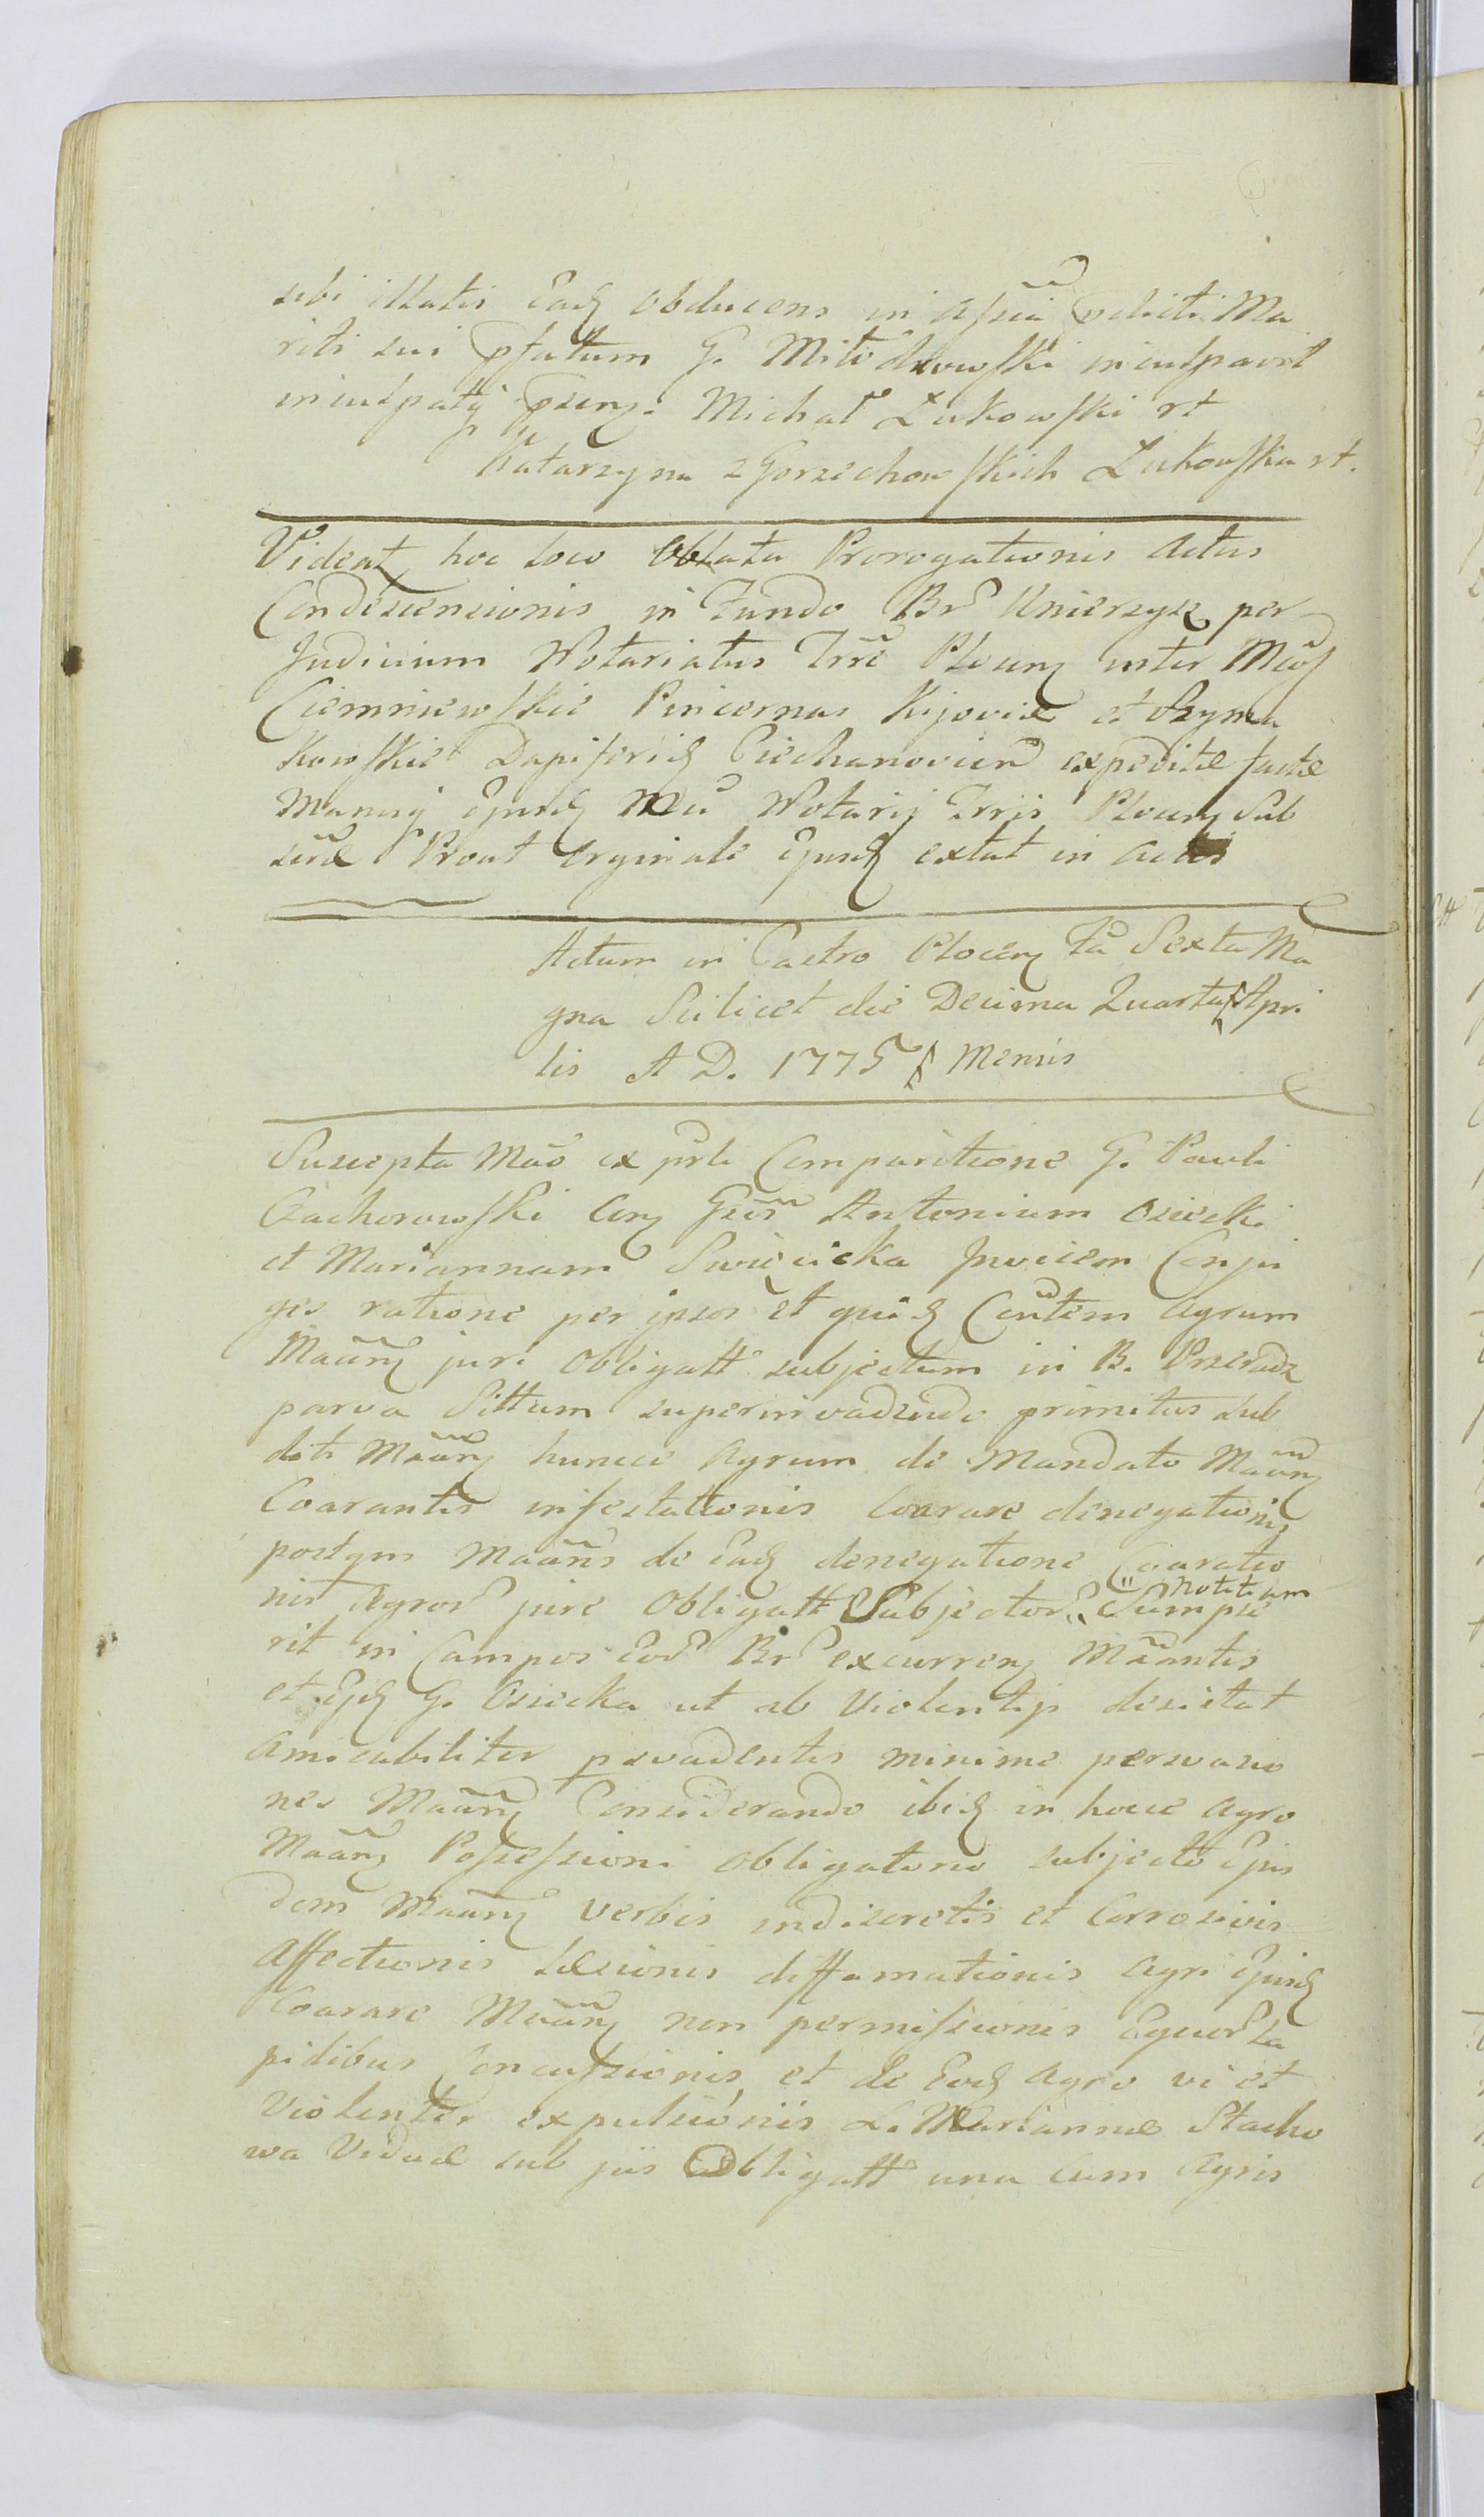 sibi illatis Eadq obducens in assia pdicti Ma
riti sui pfatum G. Miłodrowski inculpavit
inculpatq pseng. Michał Łukowski rt
Katarzyna z Gorzechowskich Łukowska rt.
Videat hoc loco Oblata Prorogationis actus
Condescensionis in Fundo Br Knierzysz per
Judicium Notariatus Trre Plocen inter Mcos
Ciemniewskie Pincernas Kijoviæ et Szyma
kowskie Dapiferiq Ciechanovien expeditæ factæ
Manuq Ejusdq Mci Notarij Trris Plocen Sub
scrræ Prout orginale Ejusdq extat in actis
Actum in Castro Plocen Fa Sexta Ma
gna Scilicet die Decima Quarta Apri
lis A D. 1775 Mensis
Suscepta Mao ex prli Comparitione G. Pauli
Czachorowski con Gsos Antonium Osiecki
et Mariannam Swięcicka Invicem Conju
ges ratione per ipsos et quidq Certem agrum
Maanq juri obligatt subjectum in B. Przeradz
parva Sittum superinvadendo primitus sub
diti Maanq huncce agrum de Mandato Maanq
Coarantis infestationis Coarare denegationis
postqm Maans de Eadq denegatione Coaratio
nis Agror jure Obligatt Subjector notitiam Sumpse
rit in Campos Eor Br excurrenq Maantis
et Ejdq G. Osiecka ut ab Violentijs desistat
amicabiliter psvadentis minime persvasio
nes Maanq Considerando ibidq in hocce agro
Maanq Possessioni obligatorio subjecto Ejus
dem Maanq verbis indiscretis et Corrosivis
affectionis Læsionis diffamationis agri Ejusdq
Coarare Maanq non permissionis Equor La
pidibus Concussionis et de Eodq agro vi et
Violenter expulsionis L. Mariannæ Stacho
wa Viduæ sub jus obligatt una cum Agris